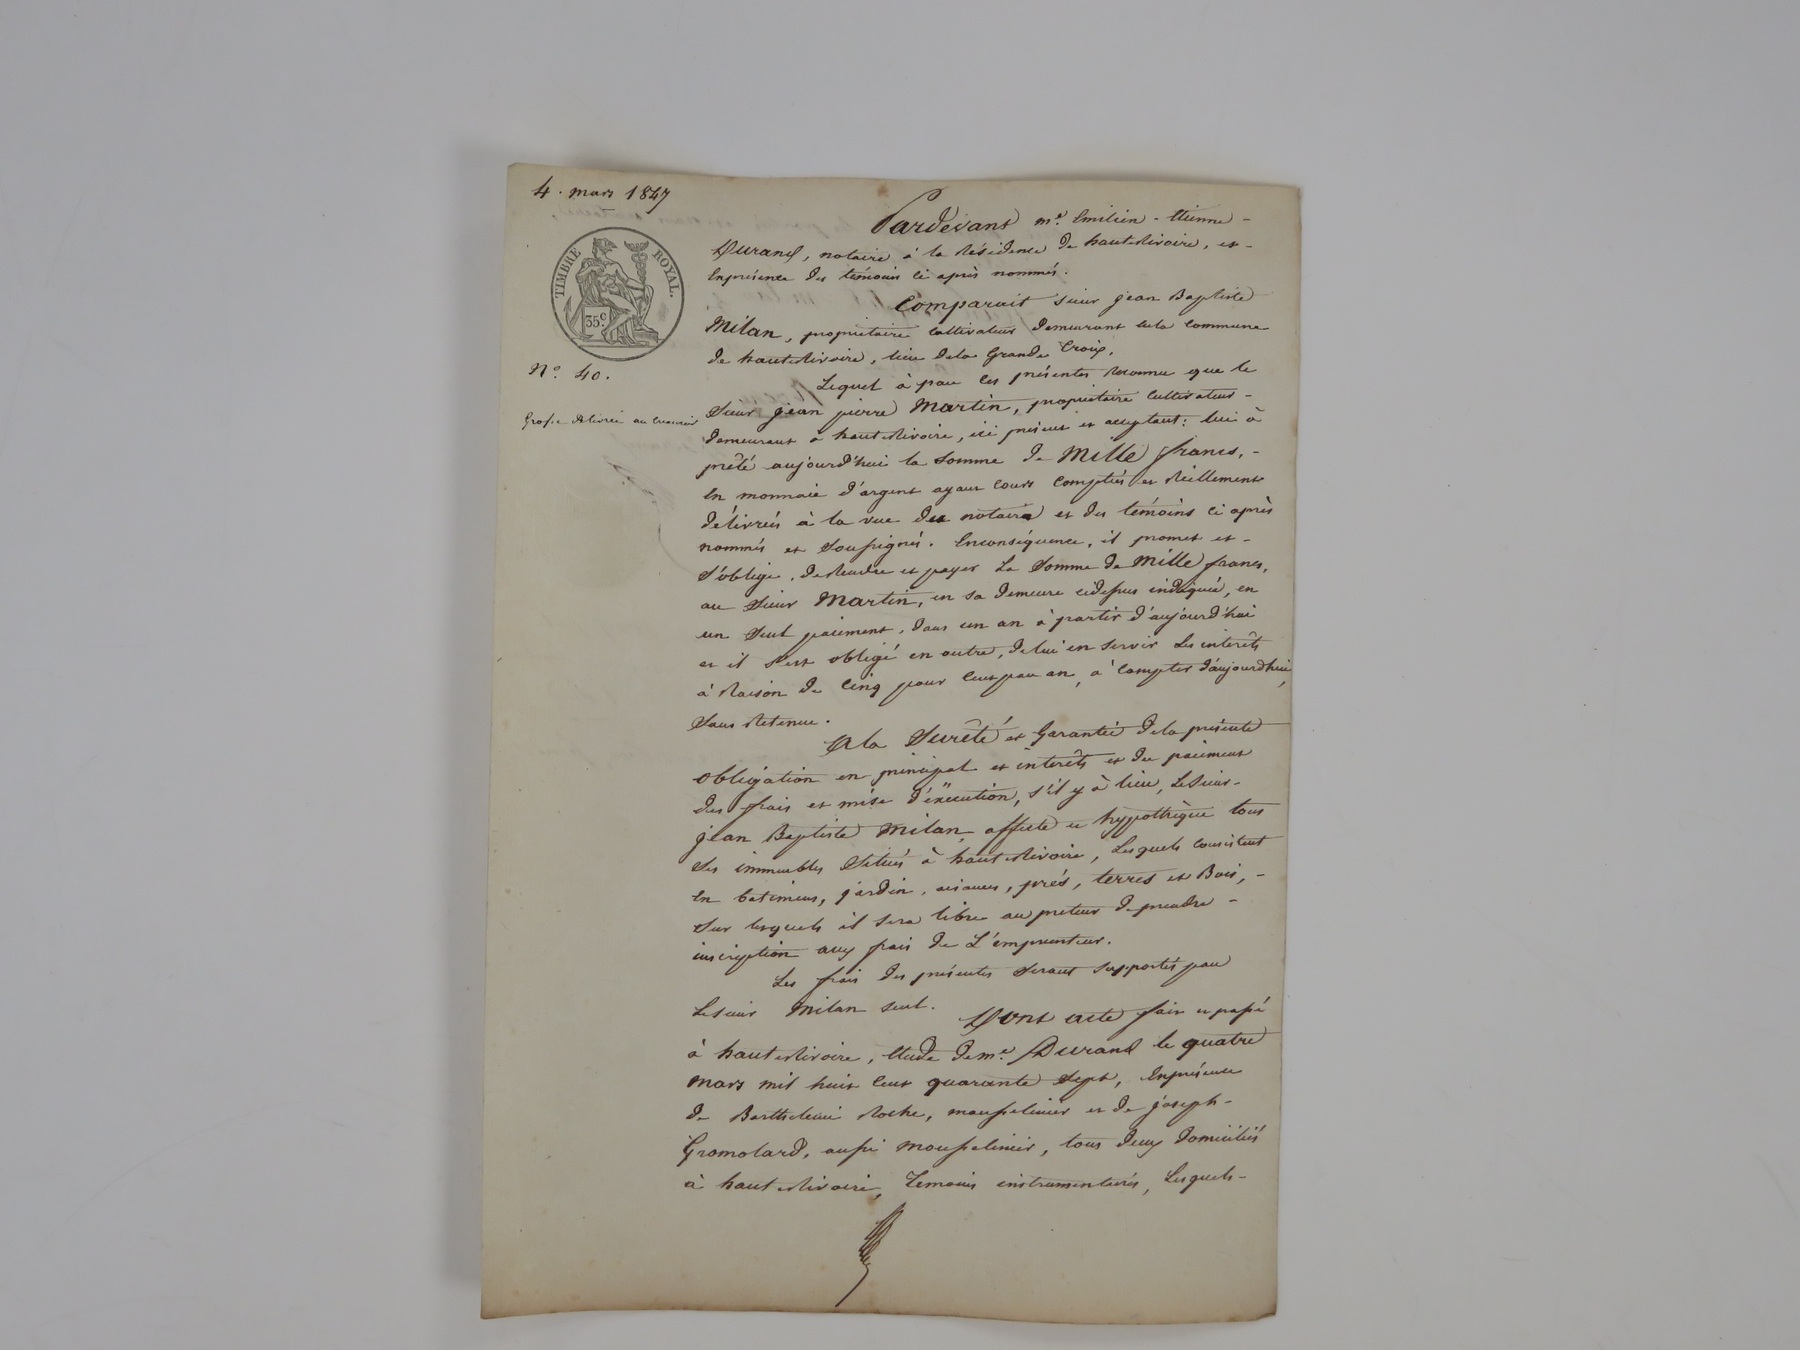 4. mars 1847
TIMBRE ROYAL.
35c
N° 40.
Grosse délivrée au créancier
Pardevant me. Emilien - Etienne -
Durand, notaire à la Résidence de hauteRivoire, et -
Enprésence des témoins ci après nommés.
Comparait sieur jean Baptiste
Milan, propriétaire cultivateur demeurant enla commune
de hauteRivoire, lieu dela Grande Croix.
Lequel à par ces présentes reconnu que le
Sieur jean pierre Martin, propriétaire cultivateur -
demeurant à hauteRivoire, ici présent et acceptant: lui à
prêté aujourd'hui la somme de Mille francs, -
En monnaie d'argent ayant cours comptés et Réellement
délivrés à la vue du notaire et des témoins ci après
nommés et soussignés. Enconséquence, il promet et -
S'oblige, deRendre et payer La Somme de Mille francs,
au Sieur Martin, en sa demeure cidessus indiquée, en
un Seul paiement, dans un an à partir d'aujourd'hui
et il s'est obligé en outre, delui en servir Les interêts
à Raison de Cinq pour Cent par an, à Compter d'aujourd'hui,
Sans Retenue.
A la Sureté et Garantie dela présente
obligation en principal et interêts et du paiement
des frais et mise d'éxécution, s'il y à lieu, LeSieur -
jean Baptiste Milan affecte et hypothèque tous
Ses immeubles Situés à hauteRivoire, Lesquels consistent
En batimens, jardin, aisances, prés, terres et Bois, -
Sur lesquels il sera libre au preteur deprendre -
inscription aux frais de L'emprunteur.
Les frais des présentes seront supportés par
LeSieur Milan seul. Dont acte fait et passé
à hauteRivoire, Etude de me. Durand le quatre
mars mil huit Cent quarante Sept, Enprésence
de Barthelemi Roche, mousselinier et de joseph -
Gromolard, aussi mousselinier, tous deux domiciliés
à hauteRivoire, Temoins instrumentaires, Lesquels -